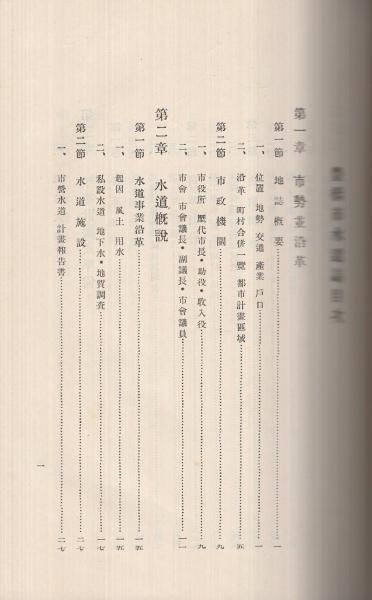 豊橋市水道誌目次
第一章 市勢並沿革
第一節 地誌概要……一
一、位置 地勢 交通 產業 戶口……一
二、沿革 町村合併一覽 都市計畫區域……五
第二節 市政機關……九
一、市役所 歷代市長・助役・收入役……九
二、市會 市會議長・副議長・市會議員……一一
第二章 水道槪說
第一節 水道事業沿革……一五
一、起因 風土 用水……一五
二、私設水道 地下水・地質調査……一七
第二節 水道施設……二七
一、市營水道 計畫報告書……二七
一